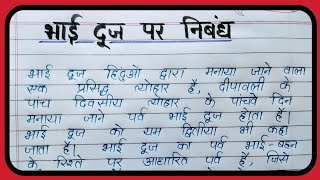 भाई दूज पर निबंध
भाई दूज हिंदुओं द्वारा मनाया जाने वाला
एक प्रसिद्ध त्योहार है, दीपावली के
पांच दिवसीय त्योहार के पांचवे दिन
मनाया जाने पर्व भाई दूज होता है।
भाई दूज को यम द्वितीया भी कहा
जाता है। भाई दूज का पर्व भाई-बहन
के रिश्ते पर आधारित पर्व है, जिसे